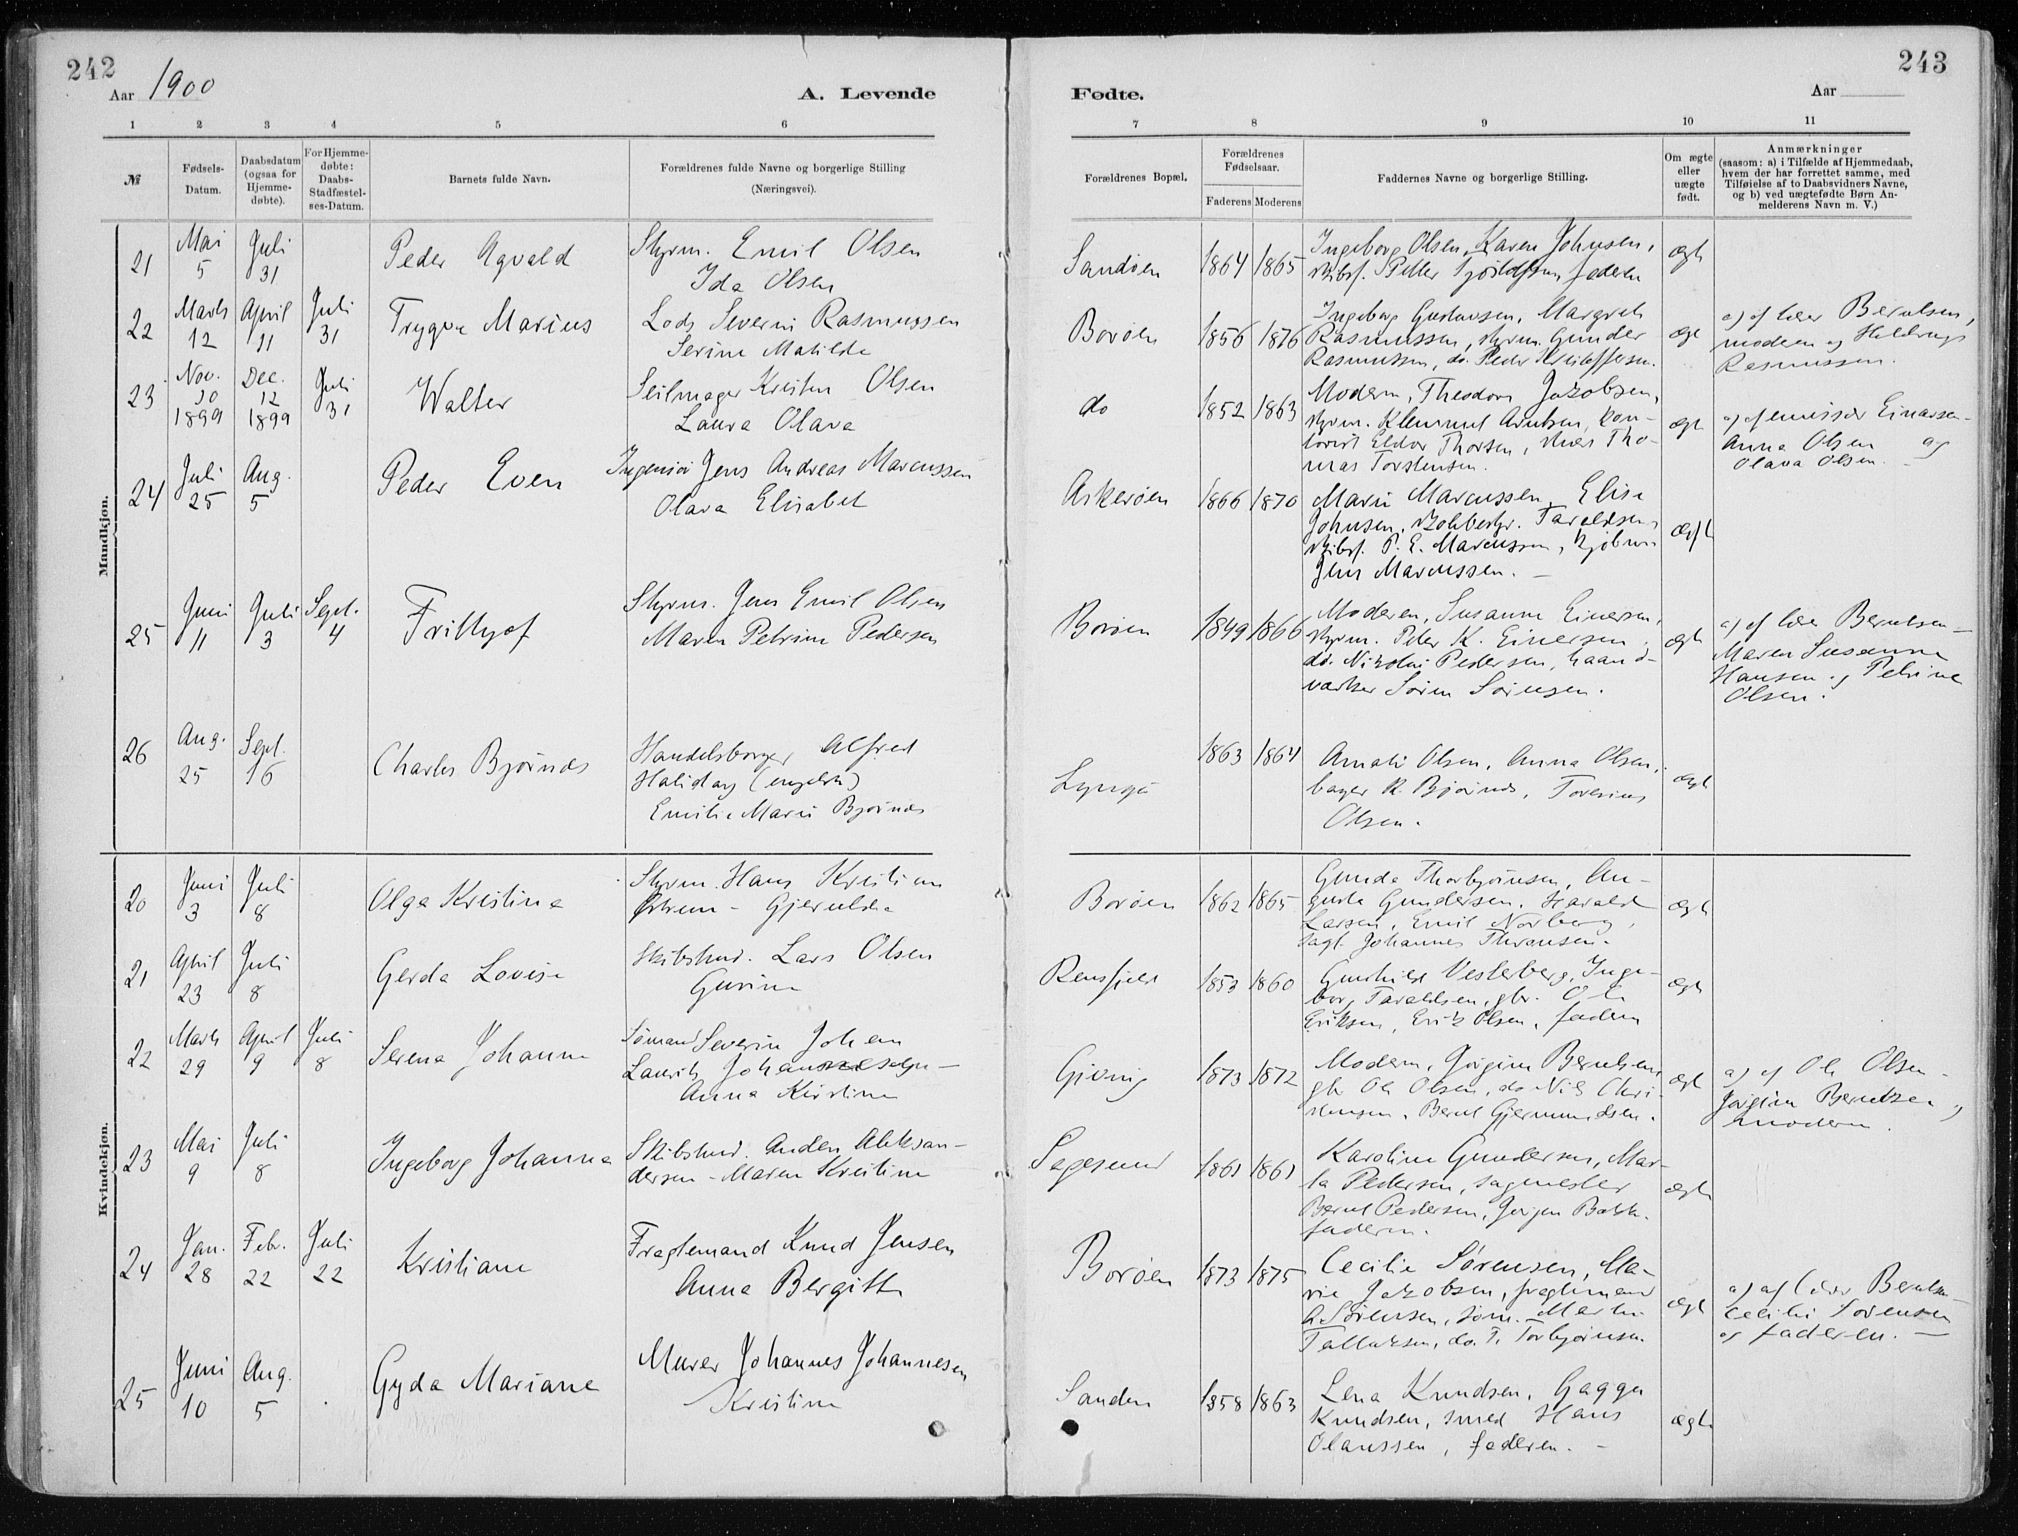 242
Aar 1900
A. Levende
1 2 3 4 5 6
№
Fødsels-
Datum.
Daabsdatum
(ogsaa for
Hjemme-
døbte).
For Hjemme-
døbte:
Daabs-
Stadfæstel-
ses-Datum.
Barnets fulde Navn.
Forældrenes fulde Navne og borgerlige Stilling
(Næringsvei).
Mandkjøn.
21 Mai 5 Juli 31 Peder Agvald
Styrm. Emil Olsen
Ida Olsen
22 Marts 12 April 11 Juli 31 Trygve Marius
Lods Severin Rasmussen
Serine Matilde
23 Nov. 10 1899 Dec. 12 1899 Juli 31 Walter
Seilmager Kristen Olsen
Laura Olava
24 Juli 25 Aug. 5 Peder Even
Ingeniør Jens Andreas Marcussen
Olava Elisabet
25 Juni 11 Juli 3 Sept. 4 Frithjof
Styrm. Jens Emil Olsen
Maren Petrine Pedersen
26 Aug. 25 Sept. 16 Charles Bjørnds
Handelsborger Alfred
Haliday (engelsk)
Emilie Marie Bjørnds
Kvindekjøn.
20 Juni 3 Juli 8 Olga Kristine
Styrm. Hans Kristian
Østrem - Gjerulda
21 April 23 Juli 8 Gerda Lovise
Skibstmd. Lars Olsen
Gurine
22 Marts 29 April 9 Juli 8 Serena Johanne
Sømand Severin Johan
Laurits Johannesen -
Anna Kirstine
23 Mai 9 Juli 8 Ingeborg Johanne
Skibstmd. Anders Aleksan-
dersen - Maren Kristine
24 Jan. 28 Febr. 22 Juli 22 Kristiane
Fragtemand Knud Jensen
Anna Bergitte
25 Juni 10 Aug. 5 Gyda Mariane
Murer Johannes Johannesen
Kristine
243
Fødte.
Aar
7 8 9 10 11
Forældrenes Bopæl.
Forældrenes
Fødselsaar.
Faderens Moderens
Faddernes Navne og borgerlige Stilling.
Om ægte
eller
uægte
født.
Anmærkninger
(saasom: a) i Tilfælde af Hjemmedaab,
hvem der har forrettet samme, med
Tilføielse af to Daabsvidners Navne,
og b) ved uægtefødte Børn An-
melderens Navn m. V.)
Sandøen 1864 1865
Ingeborg Olsen, Karen Johnsen,
skibsf. Peter faderen
ægte
Borøen 1856 1876
Ingeborg Gustavsen, Margrete
Rasmussen, styrm. Gunder
Rasmussen, do. Peder Kristoffersen.
ægte
a) af lærer Berntsen,
moderen og
Rasmussen.
do 1852 1863
Moderen, Theodora Jakobsen,
styrm. Klemmet Arntsen, kon-
torist Eldor Thorsen, Tho-
mas Torstensen.
ægte
a) af emissær Einarsen -
Anna Olsen og
Olava Olsen. -
Askerøen 1866 1870
Marie Marcussen, Elise
Johnsen, Taraldsen,
skibsf. P. E. Marcussen,
Jens Marcussen. -
ægte
Borøen 1849 1866
Moderen, Susanne Einersen,
styrm. Peter K. Einersen,
do. Nikolai Pedersen, haand-
værker Søren Sørensen.
ægte
a) af lærer Berntsen -
Maren Susanne
Hansen og Petrine
Olsen.
Lyngør 1863 1864
Amalie Olsen, Anna Olsen,
bager R. Bjørnds, Toresius
Olsen.
ægte
Borøen 1862 1865
Gunda Thorbjørnsen, Au-
gusta Gundersen, Harald
Larsen, Emil Norberg,
Johannes
ægte
1853 1860
Gunhild Vesterberg, Inge-
borg Taraldsen, gbr. Ole
Eriksen, Erik Olsen, faderen
ægte
Gieving 1873 1872
Moderen, Jørgine Berntsen,
gbr Ole Olsen, do Nils Chri-
stensen, Bernt Gjermundsen.
ægte
a) af Ole Olsen -
Jørgine Berntsen og
moderen.
Sagesund 1861 1861
Karoline Gundersen, Mar-
ta Pedersen, sagmester
Bernt Pedersen, Jørgen Bakke
faderen.
ægte
Borøen 1873 1875
Cecilie Sørensen, Ma-
rie Jakobsen, fragtemand
A. Sørensen, søm. Martin
Tallaksen, do. T. Torbjørnsen
ægte
a) af lærer Berntsen
Cecilie Sørensen
og faderen. -
Sanden 1858 1863
Lena Knudsen, Gagga
Knudsen, smed Hans
Olaussen, faderen. -
ægte